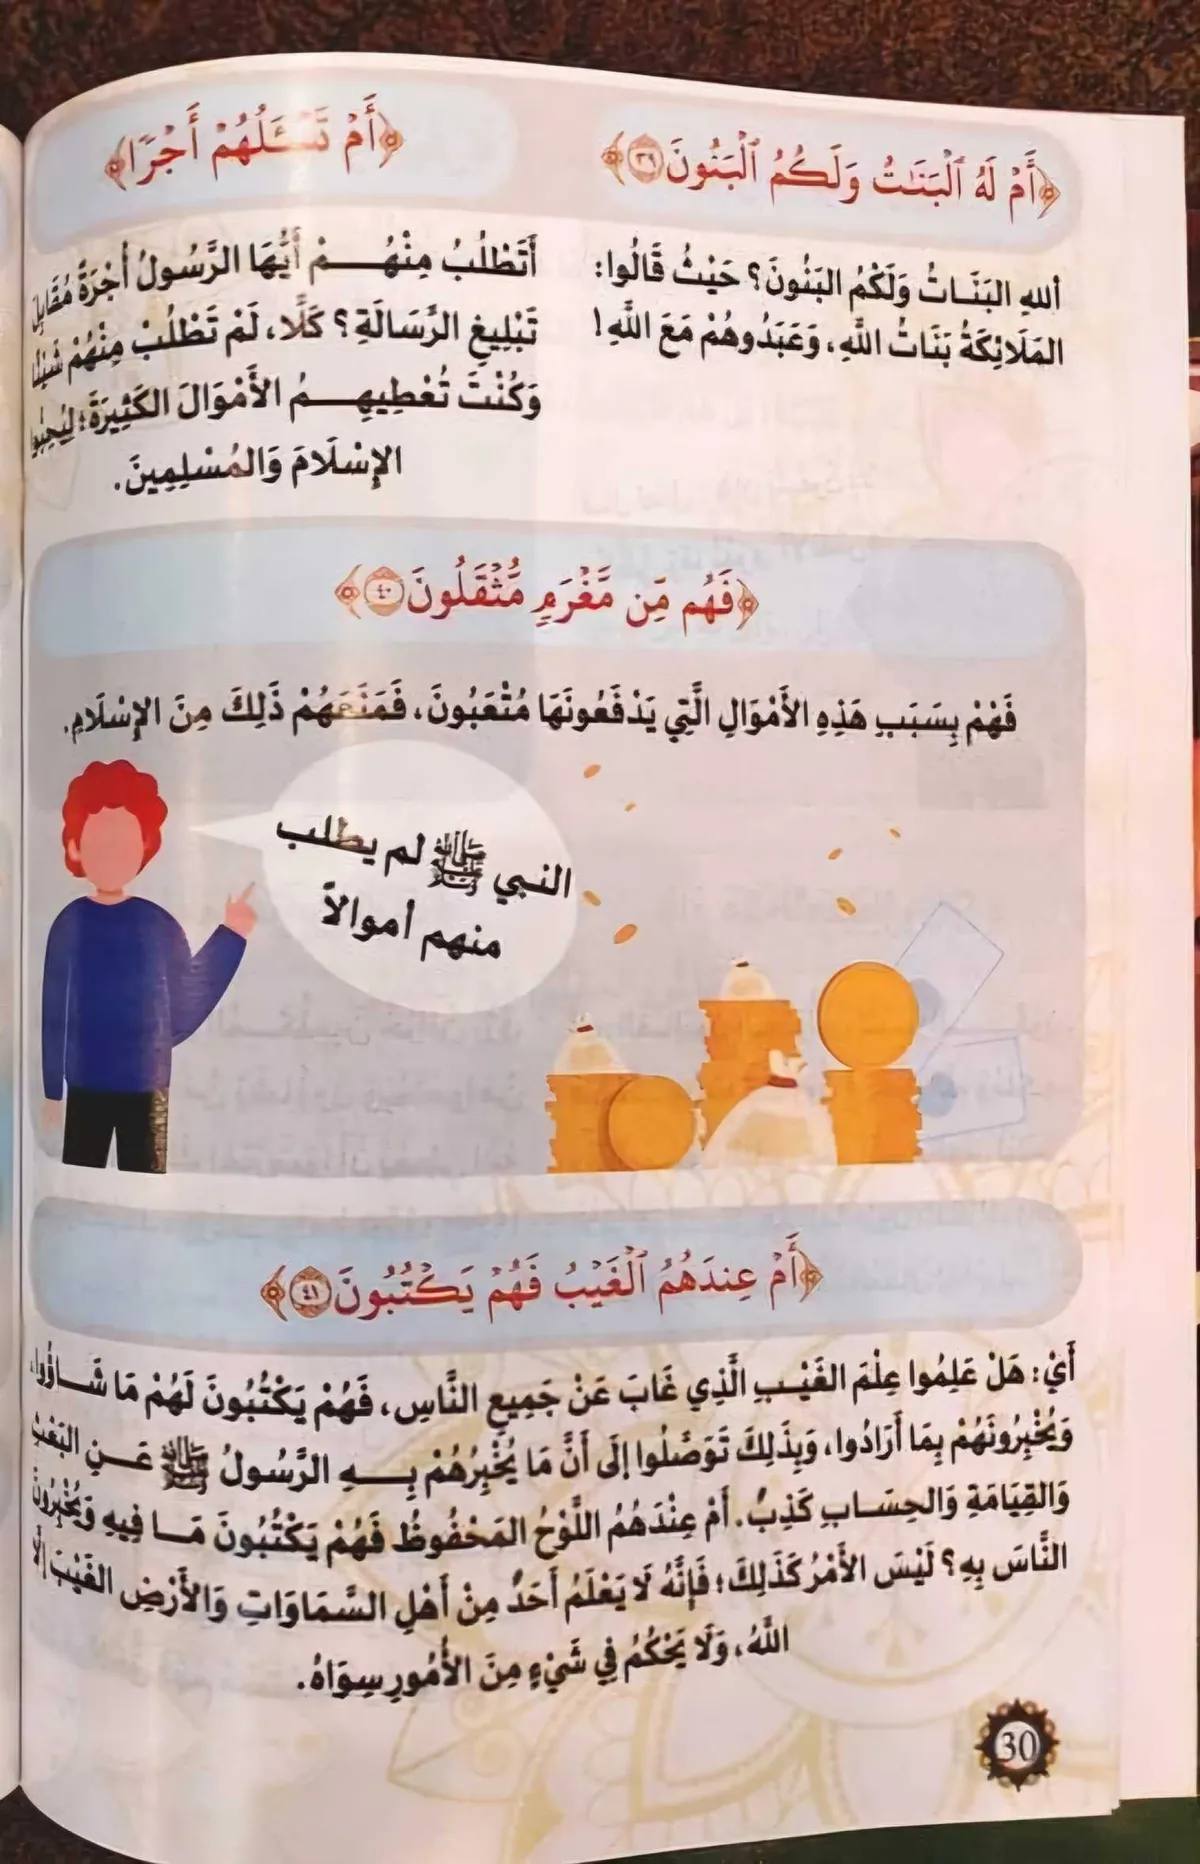 ﴿أَمْ لَهُ ٱلْبَنَٰتُ وَلَكُمُ ٱلْبَنُونَ ٣٩﴾
أللهِ البَنَــاتُ وَلَكُمُ البَنُونَ؟ حَيْثُ قَالُوا:
المَلَائِكَةُ بَنَاتُ اللَّهِ، وَعَبَدُوهُمْ مَعَ اللَّهِ!
﴿أَمْ تَسْـَٔلُهُمْ أَجْرًا﴾
أَتَطْلُبُ مِنْهُـــمْ أَيُّهَا الرَّسُولُ أُجْرَةً مُقَابِلَ
تَبْلِيغِ الرِّسَالَةِ؟ كَلَّا، لَمْ تَطْلُبْ مِنْهُمْ شَيْئًا
وَكُنْتَ تُعْطِيهِـــمُ الأَمْوَالَ الكَثِيرَةَ؛ لِيُحِبُّوا
الإِسْلَامَ وَالمُسْلِمِينَ.
﴿فَهُم مِّن مَّغْرَمٍ مُّثْقَلُونَ ٤٠﴾
فَهُمْ بِسَبَبِ هَذِهِ الأَمْوَالِ الَّتِي يَدْفَعُونَهَا مُتْعَبُونَ، فَمَنَعَهُمْ ذَلِكَ مِنَ الإِسْلَامِ.
النبي ﷺ لم يطلب
منهم أموالاً
﴿أَمْ عِندَهُمُ ٱلْغَيْبُ فَهُمْ يَكْتُبُونَ ٤١﴾
أَيْ: هَلْ عَلِمُوا عِلْمَ الغَيْـبِ الَّذِي غَابَ عَنْ جَمِيعِ النَّاسِ، فَهُمْ يَكْتُبُونَ لَهُمْ مَا شَــاؤُوا،
وَيُخْبِرُونَهُمْ بِمَا أَرَادُوا، وَبِذَلِكَ تَوَصَّلُوا إِلَى أَنَّ مَا يُخْبِرُهُمْ بِـــهِ الرَّسُولُ ﷺ عَـــنِ البَعْثِ
وَالقِيَامَةِ وَالحِسَابِ كَذِبٌ. أَمْ عِنْدَهُمُ اللَّوْحُ المَحْفُوظُ فَهُمْ يَكْتُبُونَ مَــا فِيهِ وَيُخْبِرُونَ
النَّاسَ بِهِ؟ لَيْسَ الأَمْرُ كَذَلِكَ؛ فَإِنَّهُ لَا يَعْلَمُ أَحَدٌ مِنْ أَهْلِ السَّمَاوَاتِ وَالأَرْضِ الغَيْبَ إِلَّا
اللَّهُ، وَلَا يَحْكُمُ فِي شَيْءٍ مِنَ الأُمُورِ سِوَاهُ.
30